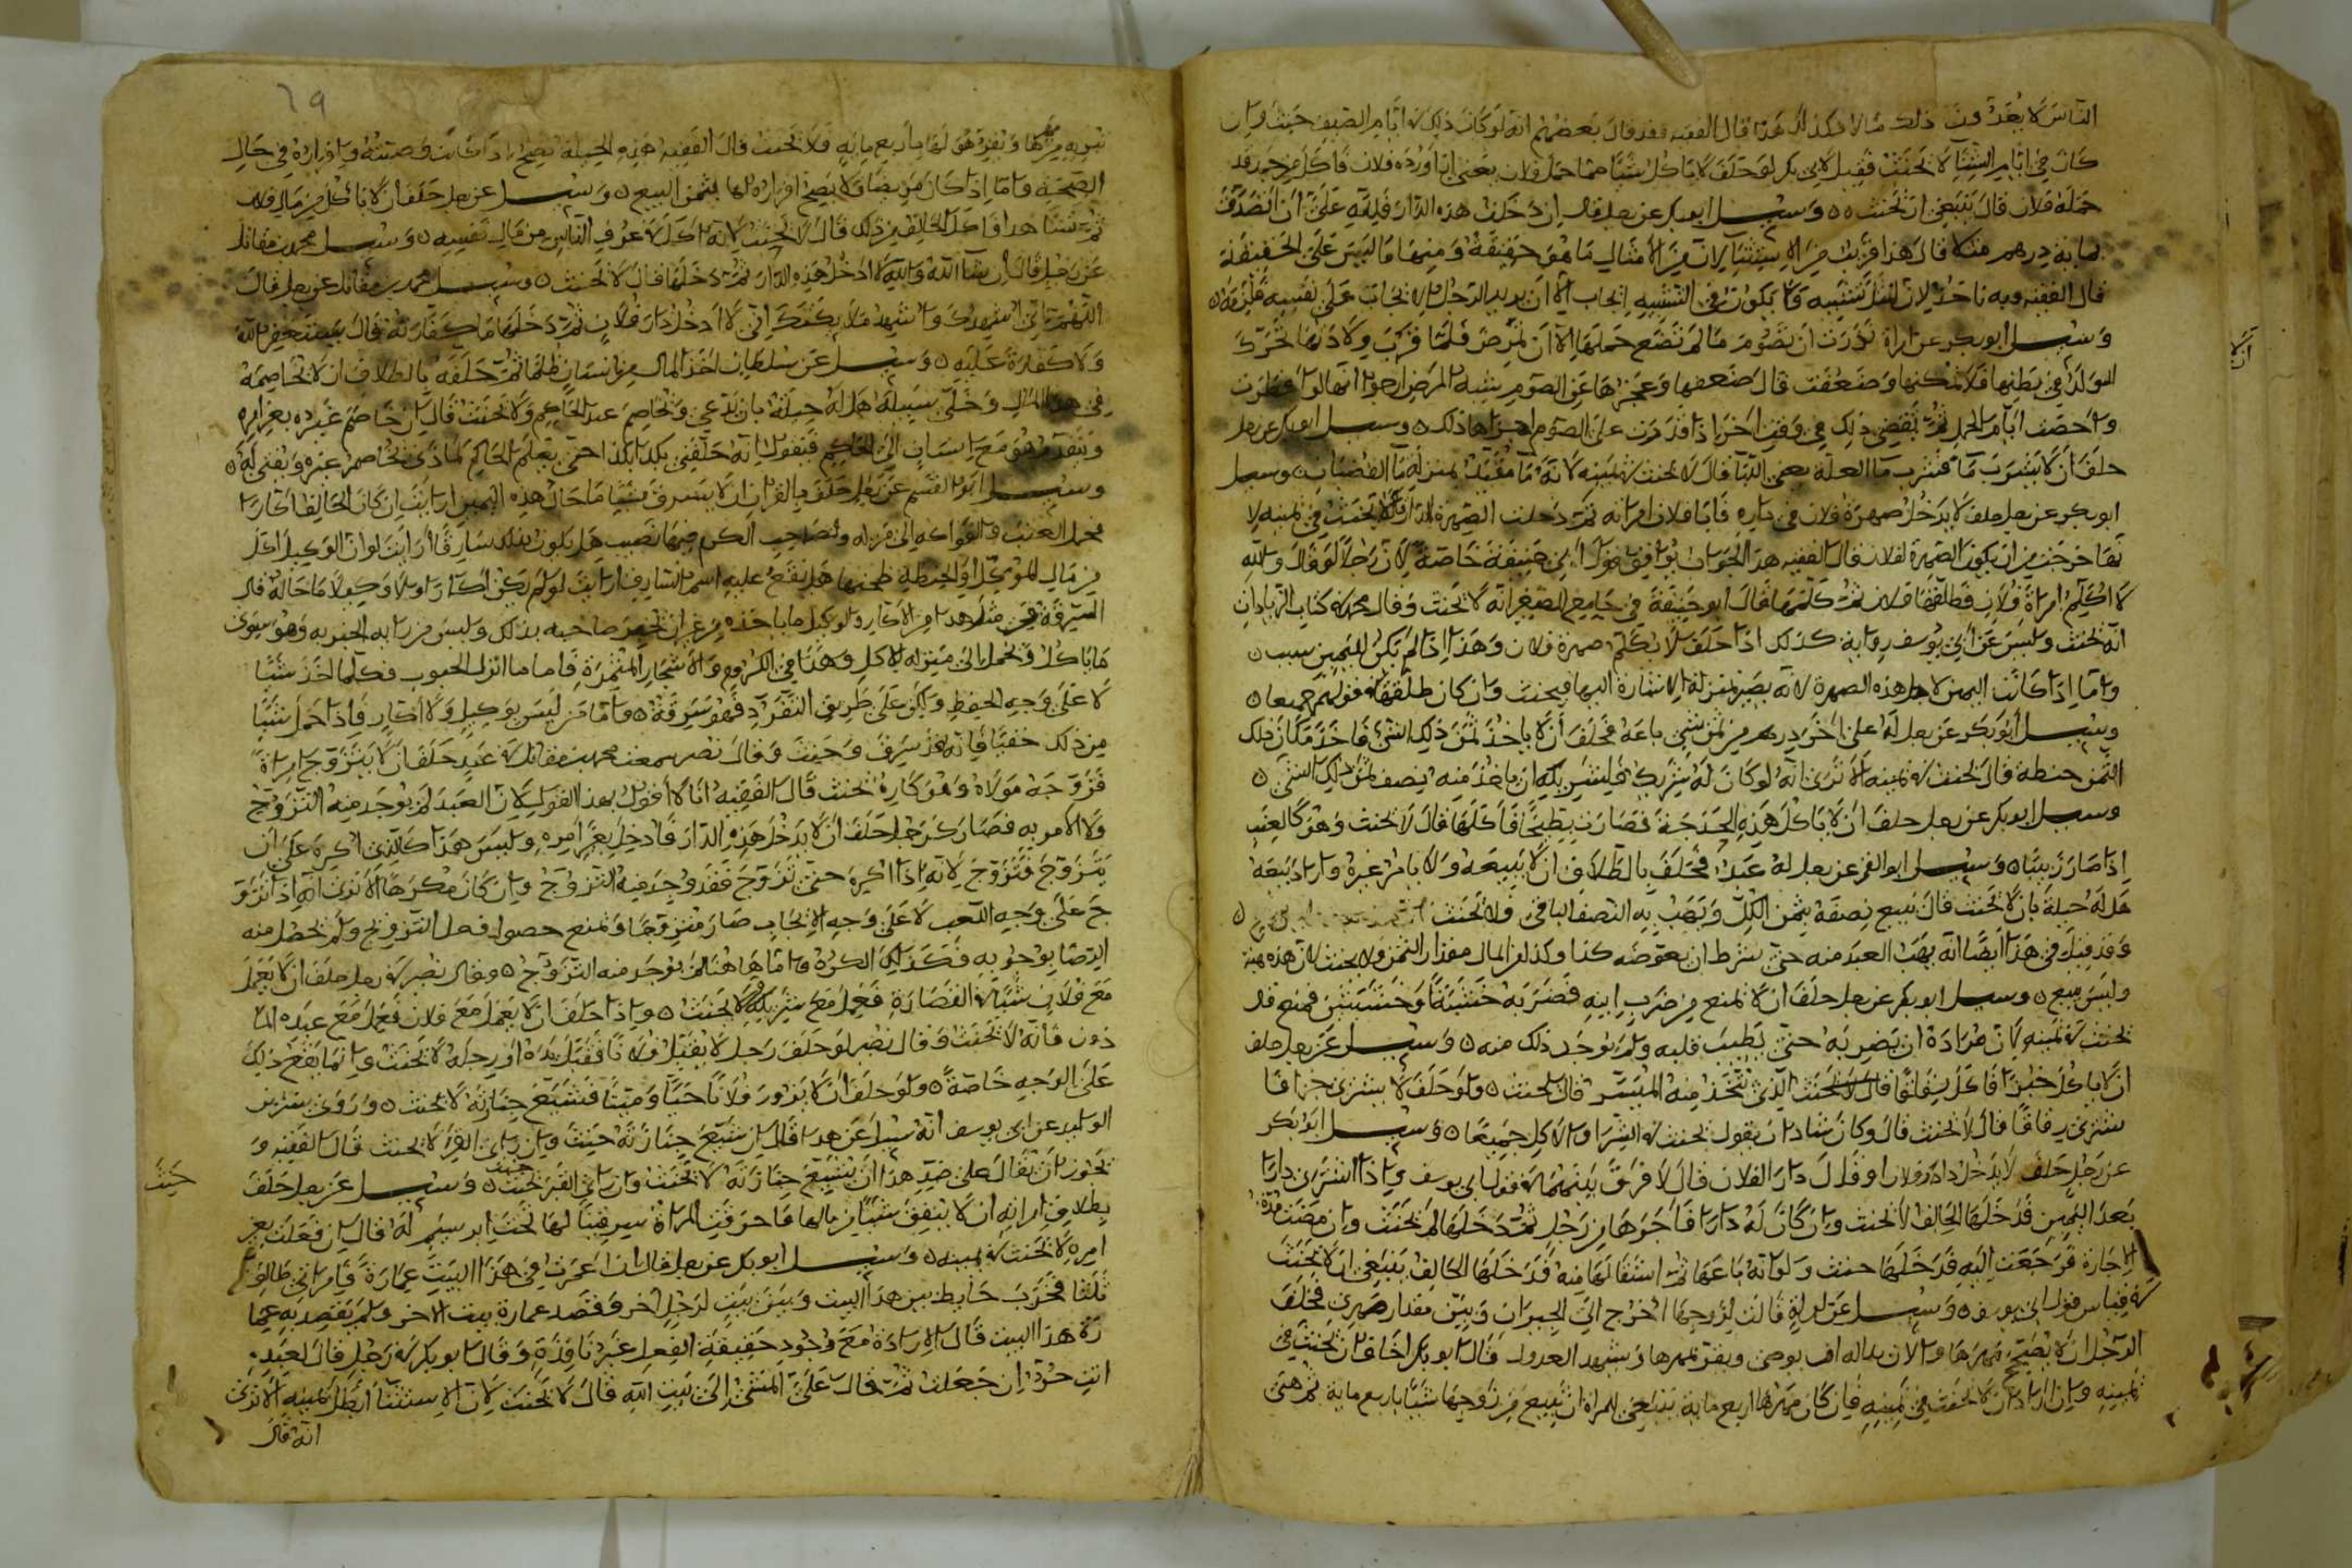 الناس لا يعدون ذلك مالا فكذلك هذا قال الفقيه فقد قال بعضهم انه لو كان ذلك في ايام الصيف حنث وان
كان في ايام الشتا لا يحنث فقيل لابي بكر لو حلف لا ياكل شيا مما حمل فلان يعني اورده فلان فاكل قد
حمله فلان قال ينبغي ان يحنث وسيل ابو بكر عن رجل قال ان دخلت هذه الدار فلله علي ان اتصدق
بماية درهم مثلا قال هذا قريب من الاستثنا لان من الامثال ما هو حقيقة ومنها ما ليس على الحقيقة
قال الفقيه وبه ناخذ لان المثل تشبيه ولا يكون في التشبيه ايجاب الا ان يريد الرجل الايجاب على نفسه فلزمه
وسيل ابو بكر عن امراة نذرت ان تصوم ما لم تضع حملها الا ان تمرض فلما قرب ولادتها تحرك
الولد في بطنها فلا يمكنها وضعفت قال ضعفها وعجزها عن الصوم يشبه المرض ارجوا انها لو افطرت
واحصت ايام الحمل ثم تقضي ذلك في وقت اخر اذا قدرت على الصوم اجزاها ذلك وسيل ابو بكر عن رجل
حلف ان لا يشرب ما فشرب ما العلة يعني قال لا يحنث في يمينه لانه ما مقيد بمنزلة ما القضبان وسيل
ابو بكر عن رجل حلف لا يدخل صهرة فلان في داره فابا فلان امراته ثم دخلت الصهرة الدار قال لا يحنث في يمينه لا
نها خرجت من ان يكون الصهرة لفلان قال الفقيه هذا الجواب يوافق قول ابي حنيفة خاصة لان رجلا لو قال والله
لا اكلم امراة فلان فطلقها فلان ثم كلمها قال ابو حنيفة في جامع الصغير انه لا يحنث وقال محمد في كتاب الزيادات
انه يحنث وليس عن ابي يوسف رواية كذلك اذا حلف لا يكلم صهرة فلان وهذا اذا لم يكن لليمين سبب
واما اذا كانت اليمين لاجل هذه الصهرة لانه يصير بمنزلة الاشارة اليها فيحنث وان كان طلقها في قولهم جميعا
وسيل ابو بكر عن رجل له على اخر درهم من ثمن شي باعه فحلف ان لا ياخذ ثمن ذلك الشي فاخذ مكان ذلك
الثمن حنطة قال يحنث في يمينه الا ترى انه لو كان له شريك فلشريكه ان ياخذ منه بنصف ثمن ذلك الشي
وسيل ابو بكر عن رجل حلف ان لا ياكل هذه الحدجة فصارت بطيخا فاكلها قال لا يحنث وهو كالعنب
اذا صار زبيبا وسيل ابو القسم عن رجل له عبد فحلف بالطلاق ان لا يبيعه ولا يامر غيره واراد بيعه
هل له حيلة بان لا يحنث قال يبيع نصفه بثمن الكل ويهب به النصف الباقي فلا يحنث
وقد قيل في هذا ايضا انه يهب العبد منه حتى بشرط ان يعوضه كذا وكذا من المال مقدار الثمن ولا يحنث لان هذه هبة
وليس ببيع وسيل ابو بكر عن رجل حلف ان لا يمنع من ضرب ابنه فضربه خشبة وخشبتين فمنع قال
يحنث في يمينه لان مراده ان يضربه حتى يطيب قلبه ولم يوجد ذلك منه وسيل عن رجل حلف
ان لا ياكل خبزا فاكل قال لا يحنث الذي يتخذ منه الميسر قال يحنث ولو حلف لا يشتري
يشتري رقاقا قال لا يحنث قال وكان شاذان يقول يحنث في الشرا والاكل جميعا وسيل ابو بكر
عن رجل حلف لا يدخل دار فلان او قال دارا لفلان قال لا فرق بينهما في قول ابي يوسف واذا اشترى دارا
بعد اليمين فدخلها الحالف لا يحنث وان كان له دار فاجرها من رجل ثم دخلها لم يحنث وان مضت مدة
الاجارة فرجعت اليه فدخلها حنث ولو انه باعها ثم استقالها منه فدخلها الحالف ينبغي ان لا يحنث
في قياس قول ابي يوسف وسيل عن امراة قالت لزوجها اخرج الى الجيران وبين مقدار مهري فحلف
الرجل ان لا يصحح مهرها ويقر بمهرها ويشهد العدول قال ابو بكر اخاف ان يحنث في
يمينه وان اراد ان لا يحنث في يمينه فان كان مهرها اربع ماية ينبغي للمراة ان تبيع من زوجها شيا باربع ماية ثم هي
ان لا
٦٩
تبريه من مهرها ويقر هو لها باربع ماية فلا يحنث قال الفقيه هذه الحيلة تصح اذا كانت واقراره في حال
الصحة واما اذا كان مريضا فلا يصح اقراره لها بثمن البيع وسيل عن رجل حلف ان لا ياكل من مال فلان
ثم فاكل الحالف من ذلك قال لا يحنث لانه اكل في عرف الناس من مال نفسه وسيل محمد بن مقاتل
عن رجل قال ان شا الله والله لا ادخل هذه الدار ثم دخلها قال لا يحنث وسيل محمد بن مقاتل عن رجل قال
اللهم اني اشهدك واشهد ملايكتك اني لا ادخل دار فلان ثم دخلها ما كفارته قال يستغفر الله
ولا كفارة عليه وسيل عن سلطان اخذ المال من انسان ظلما ثم حلفه بالطلاق ان لا يخاصمه
في هذا المال وخلى سبيله هل له حيلة بان يدعي ويخاصم عند الحاكم ولا يحنث قال ان خاصم غيره بغير امره
ويتقدم هو مع انسان الى الحاكم فيقول انه حلفني بكذا وكذا حتى يعلم الحاكم لماذا يخاصم غيره ويفتى له
وسيل ابو القسم عن رجل حلف بالقران ان لا يسرق شيا ما حال هذه اليمين ارايت ان كان الحالف اكارا
يحمل العنب والفواكه الى منزله ولصاحب الكرم فيها نصيب هل يكون بذلك سارقا ارايت لو ان الوكيل اكل
من مال الموكل او الحنطة فحملها هل يقع عليه اسم السارق ارايت لو لم يكن اكارا ولا وكيلا ما حاله قال
السرقة من مثل هذا من الاكار والوكيل ما ياخذه من غير ان يخبر صاحبه بذلك وليس من رايه الخبر به وهو سوى
ما ياكل ويحمل الى منزله للاكل وهذا في الكروم والاشجار المثمرة فاما ما انزل الحبوب فكلما اخذ شيا
لا على وجه الحفظ ولكن على طريق التفرد فهو سرقة واما من ليس بوكيل ولا اكار فاذا حمل شيا
من ذلك خفيا فانه قد سرق وحنث وقال نصر سمعت محمد بن مقاتل في عبد حلف ان لا يتزوج امراة
فزوجه مولاه وهو كاره يحنث قال الفقيه انا لا اقول بهذا القول لان العبد لم يوجد منه التزوج
ولا الامر به فصار كرجل حلف ان لا يدخل هذه الدار فادخل بغير امره وليس هذا كالذي اكره على ان
يتزوج فتزوج لانه اذا اكره حتى تزوج فقد وجد منه التزوج وان كان مكرها الا ترى انه اذا تزو
ج على وجه اللعب لا على وجه الايجاب صار متزوجا ويمنع حصول فعل التزويج ولم يحصل منه
الرضا بوجوبه فكذلك الكره واما هاهنا لم يوجد منه التزوج وقال نصر في رجل حلف ان لا يعمل
مع فلان شيا في القصارة فعمل مع شريكه لا يحنث واذا حلف ان لا يعمل مع فلان فعمل مع عبده الما
ذون فانه لا يحنث وقال نصر لو حلف رجل لا يقبل فلانا فقبل يده او رجله لا يحنث وانما يقع ذلك
على الوجه خاصة ولو حلف ان لا يزور فلانا حيا وميتا فشيع جنازته لا يحنث وروى بشر بن
الوليد عن ابي يوسف انه سيل عن هذا قال ان شيع جنازته حنث وان راى القبر لا يحنث قال الفقيه و
يجوز ان يقال على ضد هذا ان شيع جنازته لا يحنث وان راى القبر حنث وسيل عن رجل حلف
بطلاق امراته ان لا ينفق شيا من مالها لها تحت ابريسم له قال ان فعلت بغير
امره لا يحنث في يمينه وسيل ابو بكر عن رجل قال ان اعمرت في هذا البيت عمارة فامراتي طالق
ثلثا فخرب حايط بين هذا البيت وبين بيت لرجل اخر وقصد عمارة بيت الاخر ولم يقصد به عما
رة هذا البيت قال الارادة مع وجود حقيقة الفعل غير نافذة وقال ابو بكر في رجل قال لعبده
انت حر ان جعلت ثم قال علي المشي الى بيت الله قال لا يحنث لان الاستثنا ابطل يمينه الا ترى
انه قال
حنث